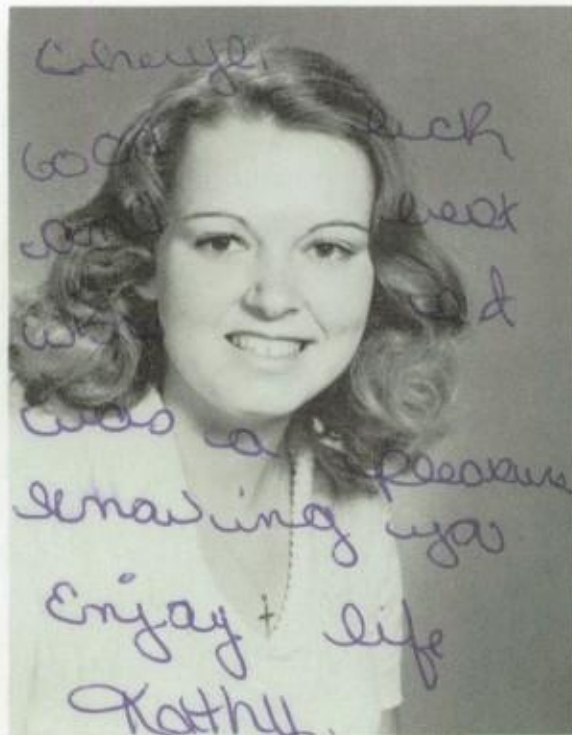 Cheryl,
Good luck
and best
wishes it
was a pleasure
knowing you
Enjoy life
Kathy.